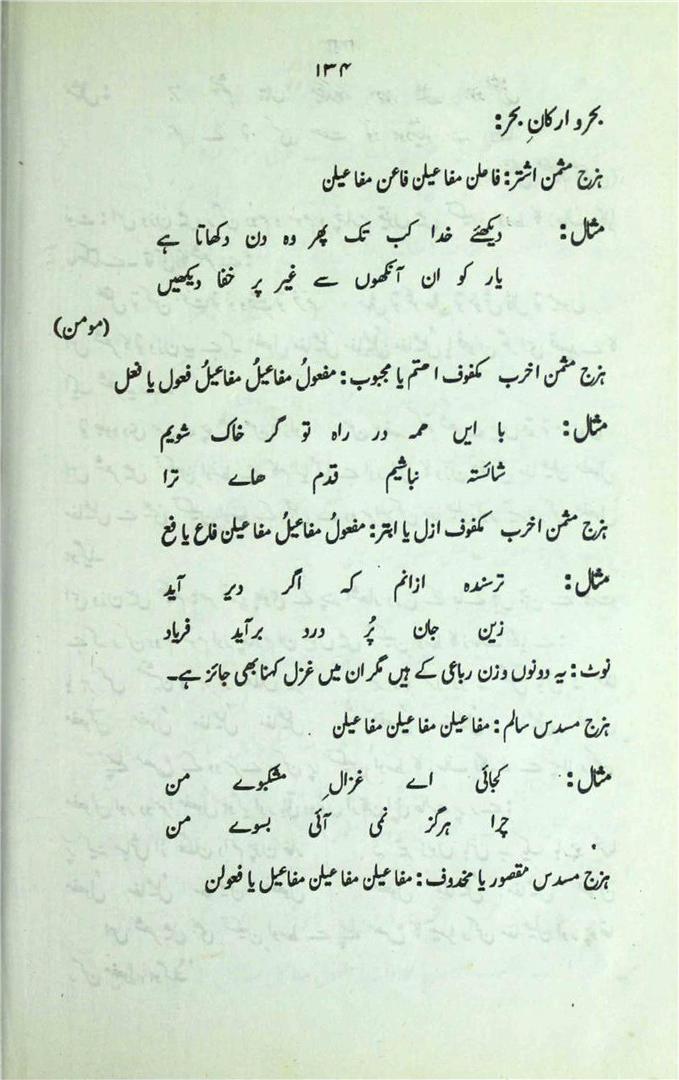 ۱۳۴
بحر و ارکانِ بحر:
ہزج مثمن اشتر: فاعلن مفاعیلن فاعن مفاعیلن
مثال: دیکھئے خدا کب تک پھر وہ دن دکھاتا ہے
یار کو ان آنکھوں سے غیر پر خفا دیکھیں
(مومن)
ہزج مثمن اخرب مکفوف اہتم یا مجبوب: مفعولُ مفاعیلُ مفاعیلُ فعول یا فعل
مثال: با ایں ہمہ در راہ تو گر خاک شویم
شائستہ نباشیم قدم ھاے ترا
ہزج مثمن اخرب مکفوف ازل یا ابتر: مفعولُ مفاعیلُ مفاعیلن فاع یا فع
مثال: ترسندہ ازانم کہ اگر دیر آید
زین جان پُر درد برآید فریاد
نوٹ: یہ دونوں وزن رباعی کے ہیں مگر ان میں غزل کہنا بھی جائز ہے۔
ہزج مسدس سالم: مفاعیلن مفاعیلن مفاعیلن
مثال: کجائی اے غزالِ مشکبوے من
چرا ہرگز نمی آئی بسوے من
ہزج مسدس مقصور یا محذوف: مفاعیلن مفاعیلن مفاعیل یا فعولن